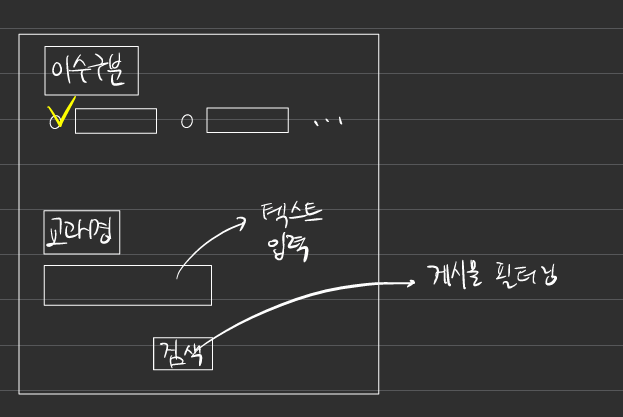 이수구분
...
교과명
텍스트
입력
게시물 필터링
검색